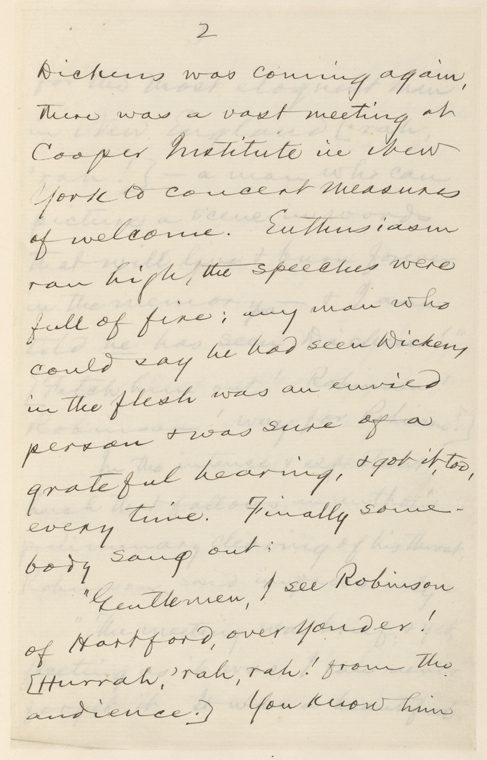 2
Dickens was coming again,
there was a vast meeting at
Cooper Institute in New
York to concert measures
of welcome. Enthusiasm
ran high, the speeches were
full of fire; any man who
could say he had seen Dickens
in the flesh was an envied
person & was sure of a
grateful hearing, & got it, too,
every time. Finally some-
body sang out:
"Gentlemen, I see Robinson
of Hartford, over yonder!
[Hurrah, 'rah, rah! from the
audience.] You know him